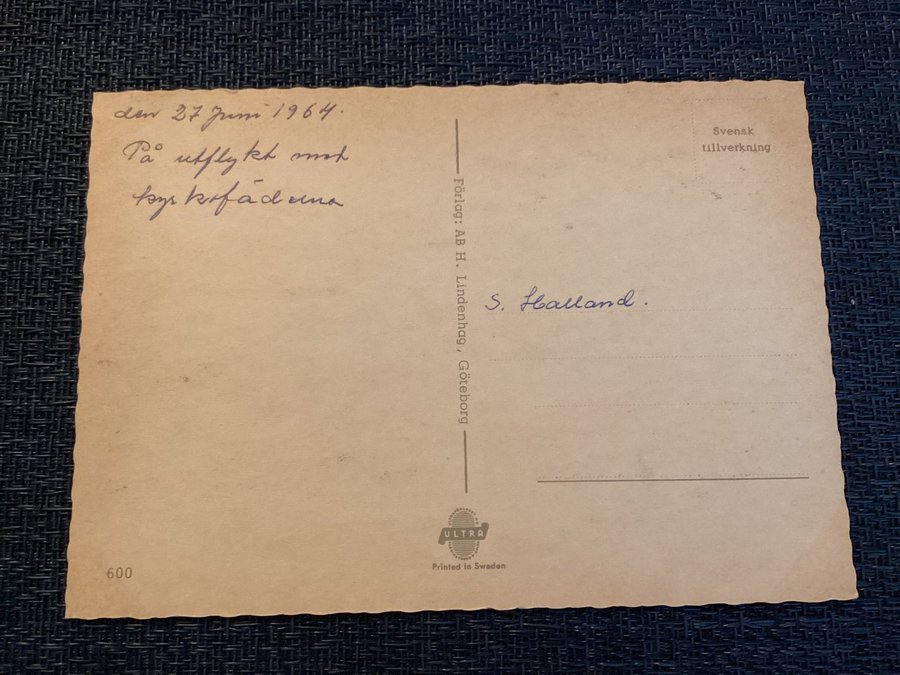 den 27 Juni 1964.
På utflykt med
kyrkofäderna
Förlag: AB H. Lindenhag, Göteborg
Svensk
tillverkning
S. Halland.
ULTRA
Printed in Sweden
600